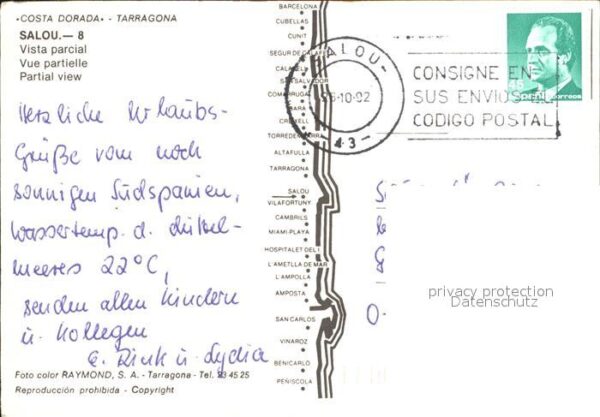 «COSTA DORADA» - TARRAGONA
SALOU.— 8
Vista parcial
Vue partielle
Partial view
Herzliche Urlaubs-
Grüße vom noch
sonnigen Südspanien,
Wassertemp. d. Mittel-
meeres 22°C,
senden allen Kindern
u. Kollegen
u. Lydia
Foto color RAYMOND, S. A. - Tarragona - Tel. 23 45 25
Reproducción prohibida - Copyright
BARCELONA
CUBELLAS
CUNIT
SEGUR DE CALAFELL
CALAFELL
SAN SALVADOR
COMARRUGA
BARA
CREIXELL
TORREDEMBARRA
ALTAFULLA
TARRAGONA
SALOU
VILAFORTUNY
CAMBRILS
MIAMI-PLAYA
HOSPITALET DEL I.
L'AMETLLA DE MAR
L'AMPOLLA
AMPOSTA
SAN CARLOS
VINAROZ
BENICARLO
PEÑISCOLA
SALOU-
-10-92
-43-
CONSIGNE EN
SUS ENVIOS EL
CODIGO POSTAL
correos
privacy protection
Datenschutz